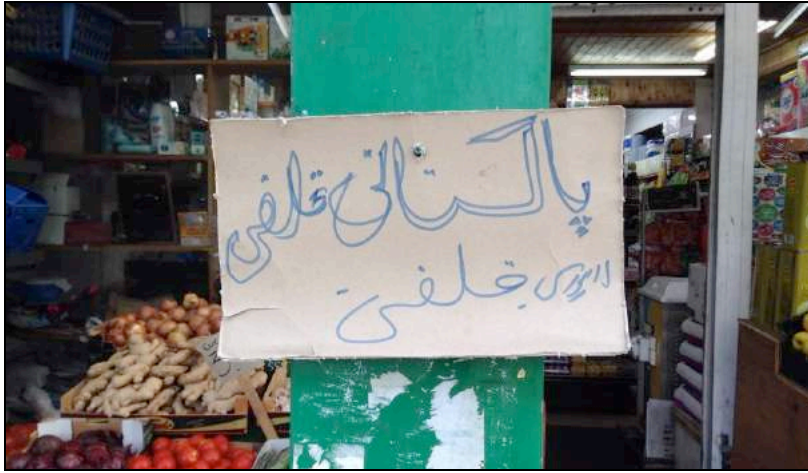 پاکستانی قلفی
لاہوری قلفی